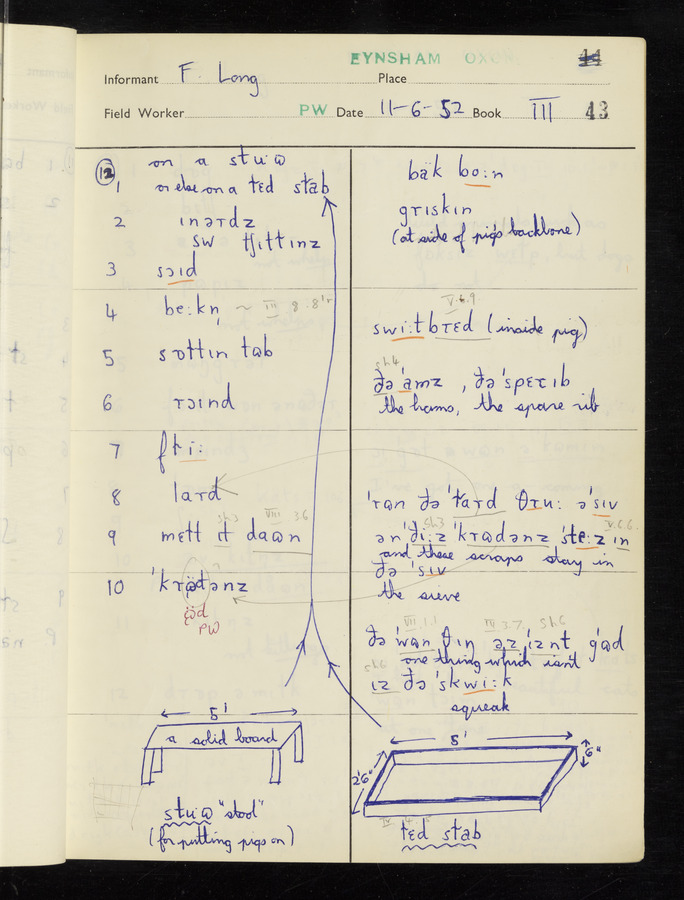 EYNSHAM OXON
44
Informant F. Long Place
Field Worker PW Date 11-6-52 Book III 43
12
on a stuɷ
1 or else on a tɛd stab
2 ɪnəɾdz
sw tʃɪttɪnz
3 sɔɪd
4 beːkn̩ ~ III 8.8
5 sɒttɪn tɒb
6 ɾəɪnd
7 flɪː
8 laɾd
sh3 VIII 3.6
9 mɛlt ɪt daʊn
10 ˈkɾædənz
PW
bak boːn
gɾɪskɪn
(at side of pig's backbone)
V.6.9
swiːtbɾɛd (inside pig)
sh4
ðə ˈamz , ðə ˈspɛɾ ɾɪb
the hams, the spare rib
ˈɾan ðə ˈlaɾd θɾuː ə ˈsɪv
sh3 V.6.6
ən ˈðiːz ˈkɾadənz ˈsteːz ɪn
and these scraps stay in
ðə ˈsɪv
the sieve
VII.1.1 III 3.7 sh6
ðə ˈwan θɪn əz ˈɪznt gad
one thing which isn't
sh6
ɪz ðə ˈskwiːk
squeak
5'
a solid board
stuɷ "stool"
(for putting pigs on)
8'
6"
2'6"
tɛd stab